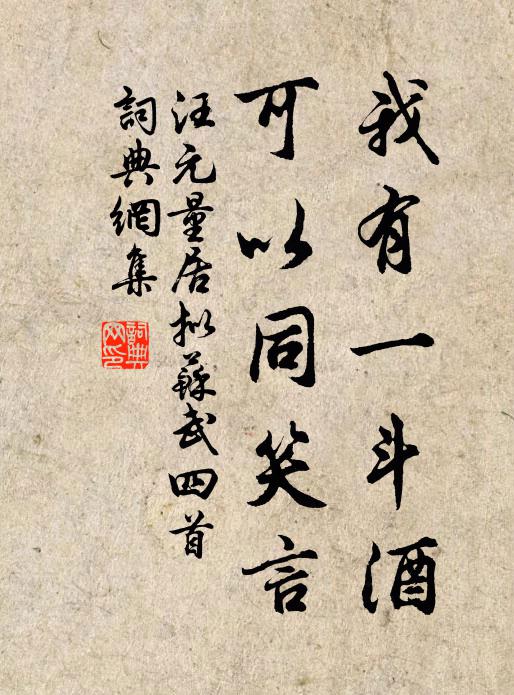 我有一斗酒
可以同笑言
汪元量居擬蘇武四首
詞典網集
詞典網印